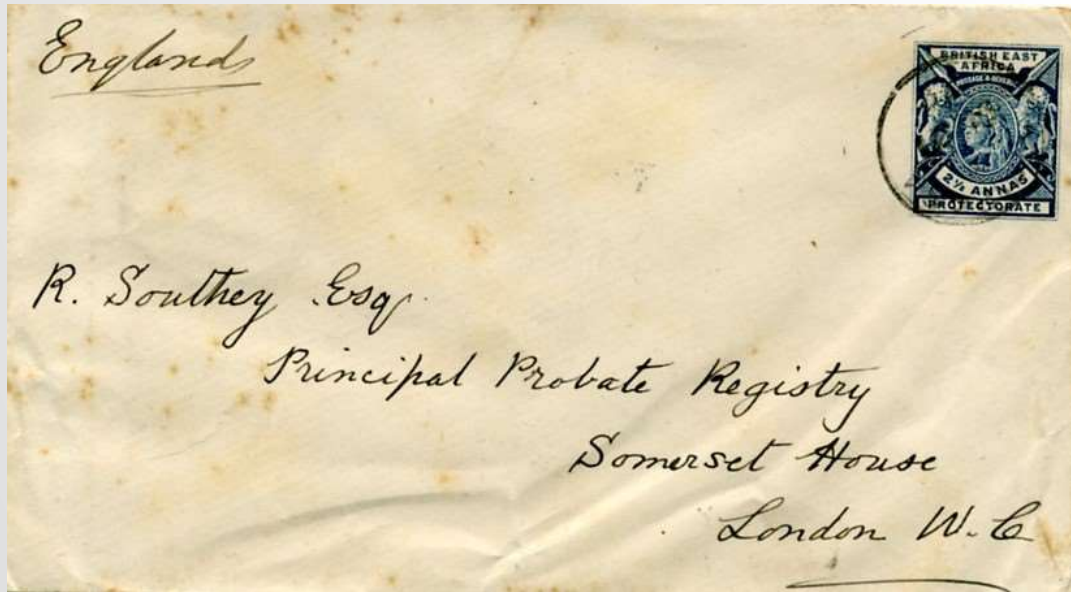 England
BRITISH EAST
AFRICA
POSTAGE & REVENUE
2½ ANNAS
PROTECTORATE
R. Southey Esq.
Principal Probate Registry
Somerset House
London W.C